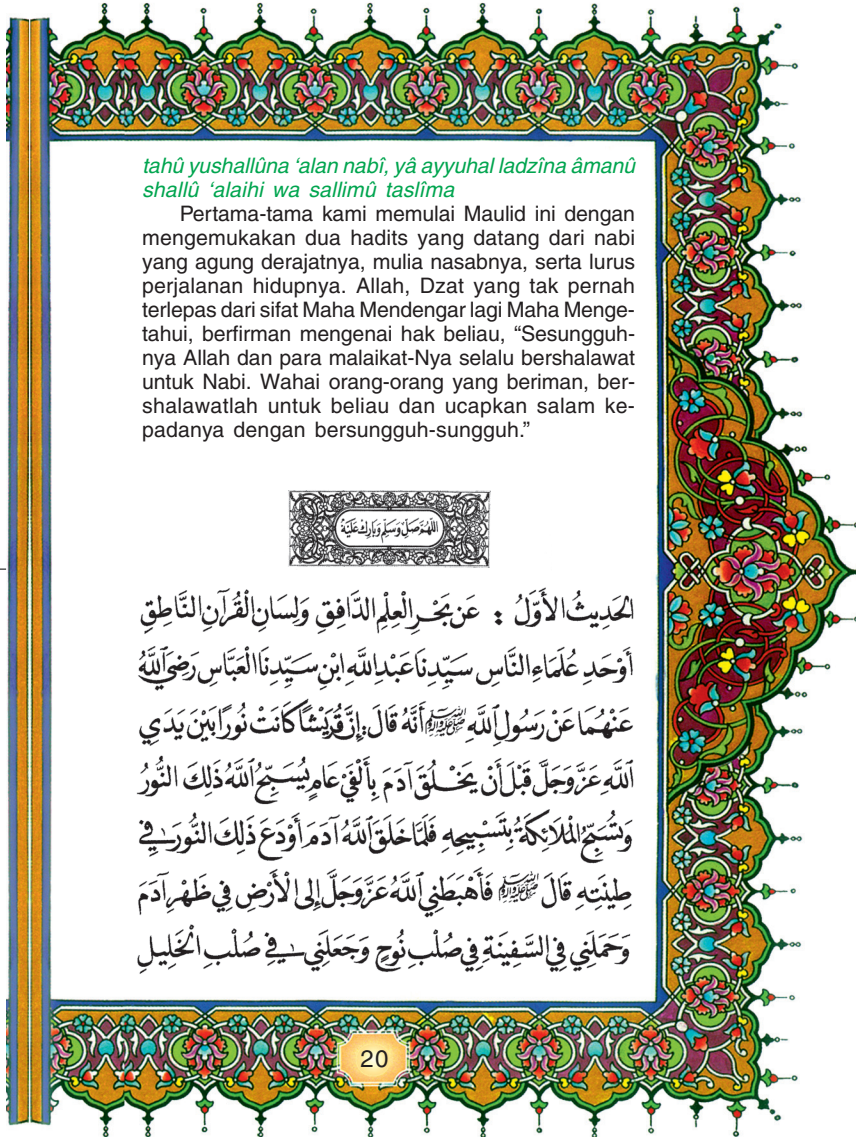 tahû yushallûna ‘alan nabî, yâ ayyuhal ladzîna âmanû
shallû ‘alaihi wa sallimû taslîma
Pertama-tama kami memulai Maulid ini dengan
mengemukakan dua hadits yang datang dari nabi
yang agung derajatnya, mulia nasabnya, serta lurus
perjalanan hidupnya. Allah, Dzat yang tak pernah
terlepas dari sifat Maha Mendengar lagi Maha Menge-
tahui, berfirman mengenai hak beliau, “Sesungguh-
nya Allah dan para malaikat-Nya selalu bershalawat
untuk Nabi. Wahai orang-orang yang beriman, ber-
shalawatlah untuk beliau dan ucapkan salam ke-
padanya dengan bersungguh-sungguh.”
اللّٰهُمَّ صَلِّ وَسَلِّمْ وَبَارِكْ عَلَيْهِ
الْحَدِيثُ الْأَوَّلُ : عَنْ بَحْرِ الْعِلْمِ الدَّافِقِ وَلِسَانِ الْقُرْآنِ النَّاطِقِ
أَوْحَدِ عُلَمَاءِ النَّاسِ سَيِّدِنَا عَبْدِ اللَّهِ ابْنِ سَيِّدِنَا الْعَبَّاسِ رَضِيَ اللَّهُ
عَنْهُمَا عَنْ رَسُولِ اللَّهِ ﷺ أَنَّهُ قَالَ: إِنَّ قُرَيْشًا كَانَتْ نُورًا بَيْنَ يَدَيِ
اللَّهِ عَزَّ وَجَلَّ قَبْلَ أَنْ يَخْلُقَ آدَمَ بِأَلْفَيْ عَامٍ يُسَبِّحُ اللَّهَ ذَلِكَ النُّورُ
وَتُسَبِّحُ الْمَلَائِكَةُ بِتَسْبِيحِهِ فَلَمَّا خَلَقَ اللَّهُ آدَمَ أَوْدَعَ ذَلِكَ النُّورَ فِي
طِينَتِهِ قَالَ ﷺ فَأَهْبَطَنِي اللَّهُ عَزَّ وَجَلَّ إِلَى الْأَرْضِ فِي ظَهْرِ آدَمَ
وَحَمَلَنِي فِي السَّفِينَةِ فِي صُلْبِ نُوحٍ وَجَعَلَنِي فِي صُلْبِ الْخَلِيلِ
20